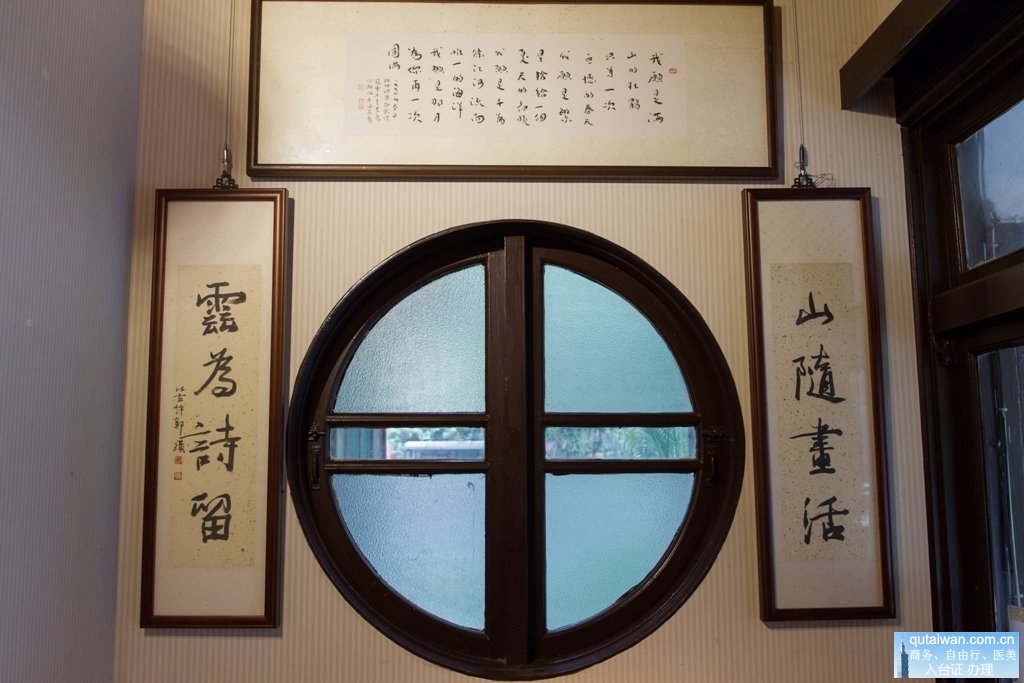 我願是滿
山的杜鵑
只為一次
無憾的春天
我願是繁
星捨給一個
夏天的夜晚
我願是千萬
條江河流向
唯一的海洋
我願是那月
為你再一次
圓滿
山隨畫活
雲為詩留
qutaiwan.com.cn
商务、自由行、医美
入台证 办理